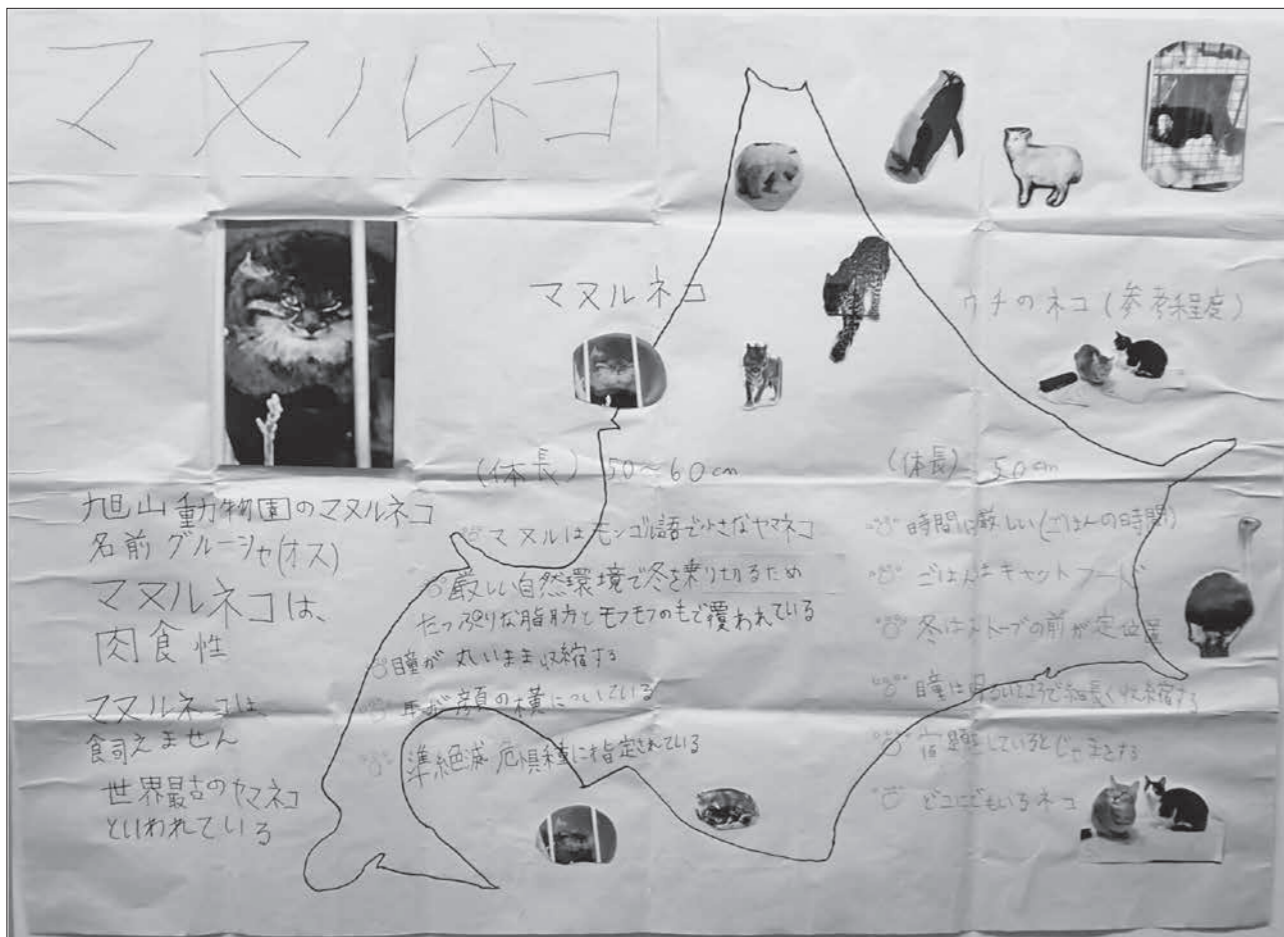 マヌルネコ
旭山動物園のマヌルネコ
名前 グルーシャ(オス)
マヌルネコは、
肉食性
マヌルネコは、
飼えません
世界最古のヤマネコ
といわれている
マヌルネコ
(体長) 50～60cm
マヌルはモンゴル語で小さなヤマネコ
厳しい自然環境で冬を乗り切るため
たっぷりな脂肪とモフモフのもで覆われている
瞳が丸いまま収縮する
耳が顔の横についている
準絶滅危惧種に指定されている
ウチのネコ(参考程度)
(体長) 50cm
時間に厳しい(ごはんの時間)
ごはんはキャットフード
冬はストーブの前が定位置
瞳は明るいところで細長く収縮する
宿題しているとじゃまをする
どこにでもいるネコ